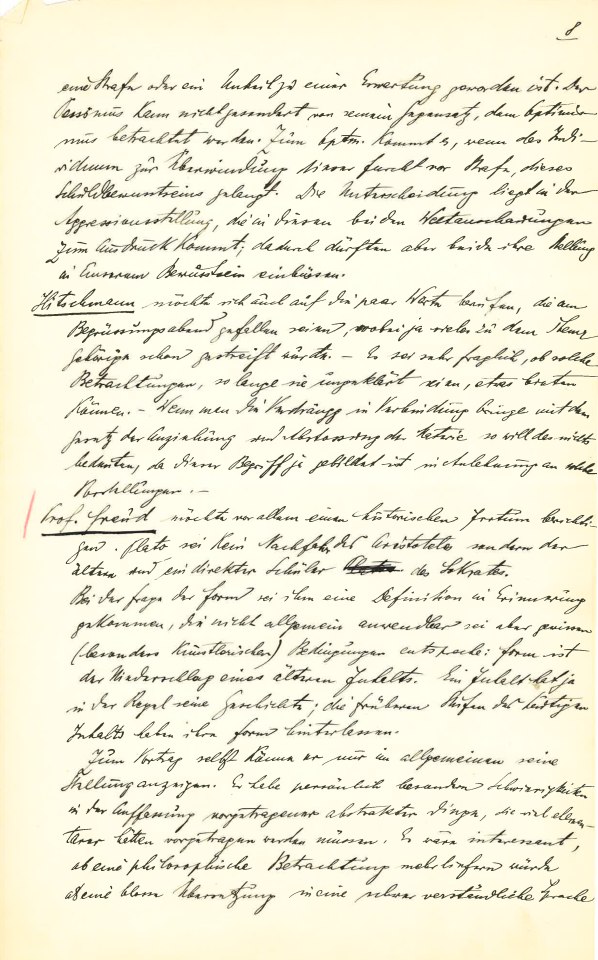 8
eine Strafe oder ein Urteil zu einer Erwartung geworden ist. Der
Pessimismus kann nicht gesondert von seinem Gegensatz, dem Optimis-
mus betrachtet werden. Zum Optm. kommt es, wenn das Indi-
viduum zur Überwindung dieser Furcht vor Strafe, dieses
Schuldbewustseins gelangt. Die Unterscheidung liegt in der
Aggressionsstellung, die in diesen beiden Weltanschauungen
zum Ausdruck kommt; dadurch dürften aber beide ihre Stellung
in unserem Bewustsein einbüssen.
Hitschmann möchte sich auch auf die paar Worte berufen, die am
Begrüssungsabend gefallen seien, wobei ja vieles zu dem Thema
gehörige schon gestreift wurde. – Es sei sehr fraglich, ob solche
Betrachtungen, so lange sie ungeklärt seien, etwas bieten
können. – Wenn man die Verdrängg in Verbindung bringe mit dem
Gesetz der Anziehung und Abstossung der Materie so will das nichts
bedeuten, da dieser Begriff ja gebildet ist in Anlehnung an solche
Vorstellungen. –
Prof. Freud möchte vor allem einen historischen Irrtum berichti-
gen. Plato sei kein Nachfahr des Aristoteles sondern der
ältere und ein direkter Schüler des Sokrates.
Bei der Frage der Form sei ihm eine Definition in Erinnerung
gekommen, die nicht allgemein anwendbar sei aber gewissen
(besonders künstlerischen) Bedingungen entspreche: Form ist
der Niederschlag eines älteren Inhalts. Ein Inhalt hat ja
in der Regel seine Geschichte; die früheren Stufen des heutigen
Inhalts haben ihre Form hinterlassen.
Zum Vortrag selbst könne er nur im allgemeinen seine
Stellung anzeigen. Er habe persönlich besondere Schwierigkeiten
in der Auffassung vorgetragener abstrakter Dinge, die viel elemen-
tarer hätten vorgetragen werden müssen. Es wäre interessant,
ob eine philosophische Betrachtung mehr liefern würde
als eine blosse Übersetzung in eine schwer verständliche Sprache